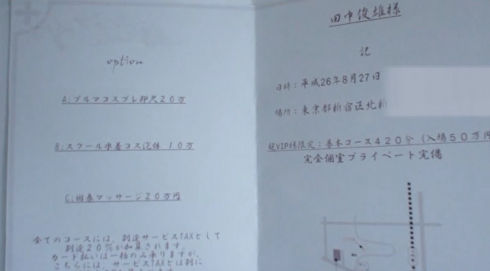 option
A:ブルマコスプレ即尺20万
B:スクール水着コス泡体 10万
C:回春マッサージ20万円
全てのコースには、別途サービスTAXとして
別途20%が加算されます。
カード払いは一括のみ承りますが、
こちらには、サービスTAXとは別に
田中俊雄様
記
日時:平成26年8月27日
場所:東京都新宿区北新
超VIP様限定:基本コース420分(入場50万円
完全個室プライベート完備